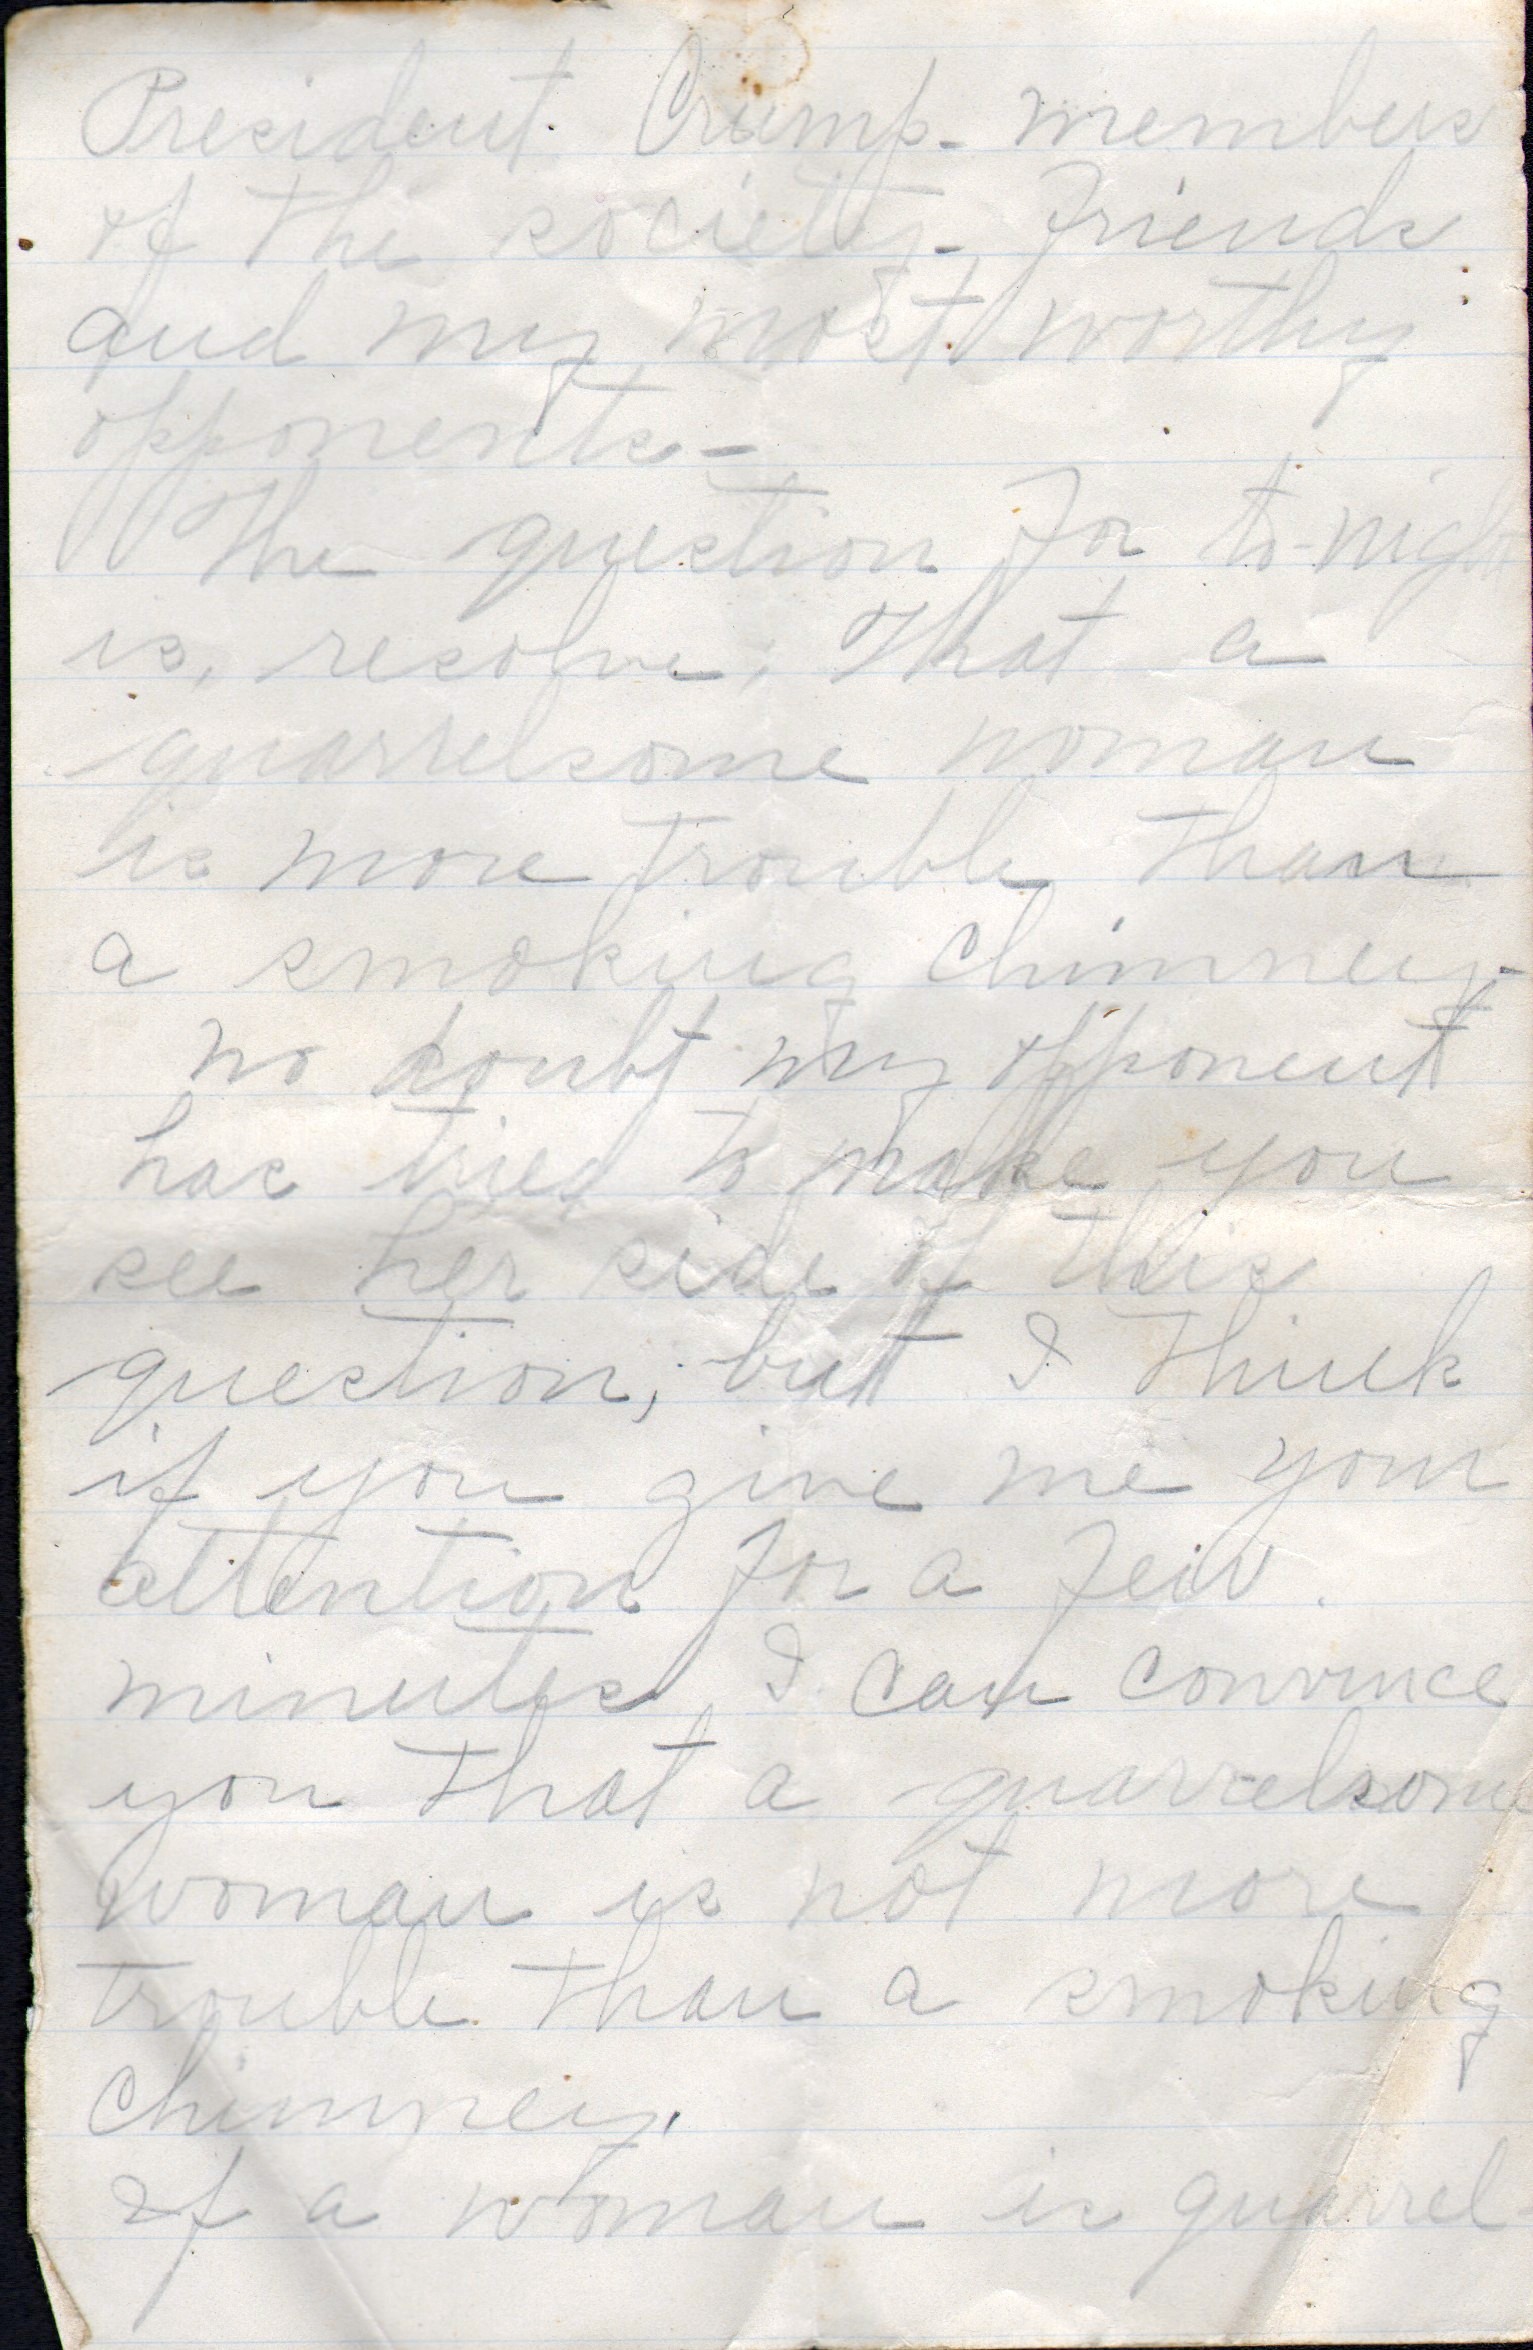 President Crump - members
of the society - Friends
and my most worthy
opponents -
The question for to-night
is, resolve; That a
quarrelsome woman
is more trouble than
a smoking chimney -
no doubt my opponent
has tried to make you
see her side of this
question, but I think
if you give me your
attention for a few
minutes, I can convince
you that a quarrelsome
woman is not more
trouble than a smoking
chimney.
If a woman is quarrel-